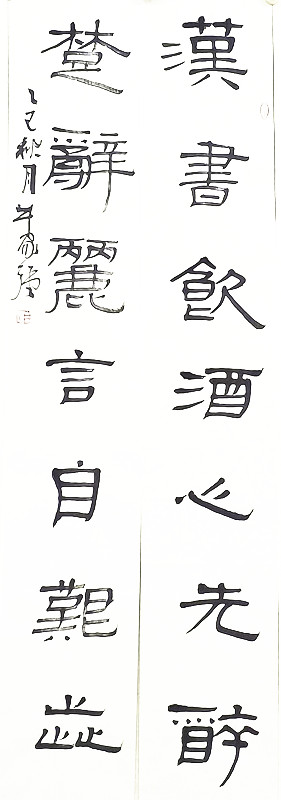 漢書飲酒心先醉
楚辭麗言自艱些
乙巳秋月